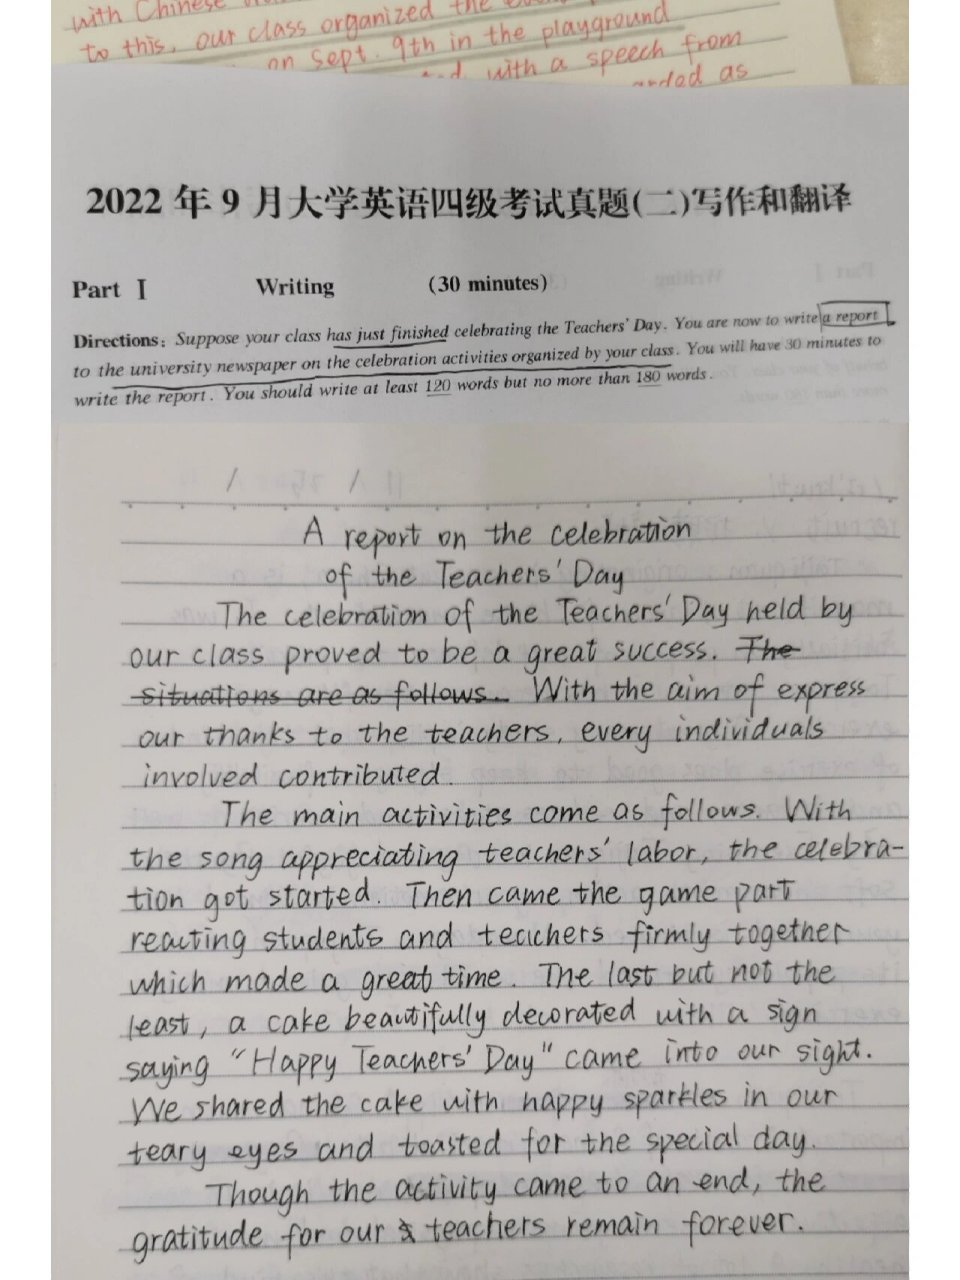 with Chinese
to this, our class organized the
on Sept. 9th in the playground
with a speech from
as
2022 年 9 月大学英语四级考试真题(二)写作和翻译
Part Ⅰ Writing (30 minutes)
Directions: Suppose your class has just finished celebrating the Teachers' Day. You are now to write a report
to the university newspaper on the celebration activities organized by your class. You will have 30 minutes to
write the report. You should write at least 120 words but no more than 180 words.
A report on the celebration
of the Teachers' Day
The celebration of the Teachers' Day held by
our class proved to be a great success. The
situations are as follows. With the aim of express
our thanks to the teachers, every individuals
involved contributed.
The main activities come as follows. With
the song appreciating teachers' labor, the celebra-
tion got started. Then came the game part
reacting students and teachers firmly together
which made a great time. The last but not the
least, a cake beautifully decorated with a sign
saying "Happy Teachers' Day" came into our sight.
We shared the cake with happy sparkles in our
teary eyes and toasted for the special day.
Though the activity came to an end, the
gratitude for our teachers remain forever.